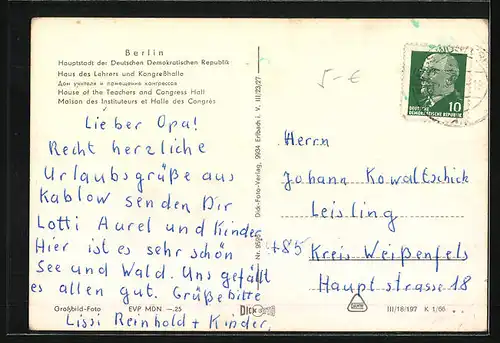 Berlin
Hauptstadt der Deutschen Demokratischen Republik
Haus des Lehrers und Kongreßhalle
Дом учителя и помещение конгрессов
House of the Teachers and Congress Hall
Maison des Instituteurs et Halle des Congrès
Lieber Opa!
Recht herzliche
Urlaubsgrüße aus
Kablow senden Dir
Lotti Aurel und Kinder
Hier ist es sehr schön
See und Wald. Uns gefällt
es allen gut. Grüße bitte
Lissi Reinhold + Kinder.
Großbild-Foto EVP MDN -.25 DICK
Dick-Foto-Verlag, 9934 Erlbach i. V. III/23/27
5-€
10
DEUTSCHE
DEMOKRATISCHE REPUBLIK
Herrn
Johann Kowaltschick
Leisling
485 Kreis Weißenfels
Hauptstrasse 18
III/18/197 K 1/66